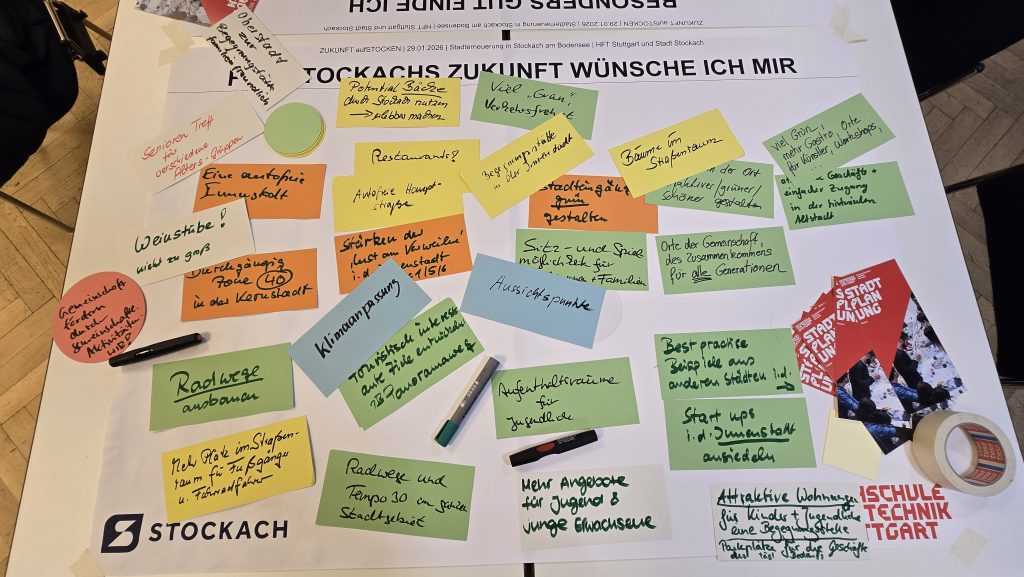 BESONDERS GUT FINDE ICH
ZUKUNFT aufSTOCKEN | 29.01.2026 | Stadterneuerung in Stockach am Bodensee | HFT Stuttgart und Stadt Stockach
ZUKUNFT aufSTOCKEN | 29.01.2026 | Stadterneuerung in Stockach am Bodensee | HFT Stuttgart und Stadt Stockach
STOCKACHS ZUKUNFT WÜNSCHE ICH MIR
Oberstadt
zur
Begegnungsstätte
familienfreundlich
Potential Bäche
durch Stockach nutzen
→ erlebbar machen
Viel "Grün",
Verkehrsfreiheit
Senioren Treff
für
verschiedene
Alters-Gruppen
Restaurants?
Begegnungsstätte
in der Innenstadt
Bäume im
Straßenraum
Viel Grün,
mehr Gastro, Orte
für Künstler, Workshops,
Eine autofreie
Innenstadt
Autofreie Haupt-
straße
Stadteingänge
grün
gestalten
der Ort
attraktiver/grüner/
schöner gestalten
Geschäfte +
einfacher Zugang
in der historischen
Altstadt
Weinstube!
nicht zu groß
Stärken der
"Lust am Verweilen"
i.d. Innenstadt
Sitz- und Spiel
möglichkeit für
+ Familien
Orte der Gemeinschaft,
des Zusammenkommens
für alle Generationen
Durchgängig
Zone 40
in der Kernstadt
Klimaanpassung
Aussichtspunkte
Gemeinschaft
fördern
durch
gemeinschaftl.
Aktivitäten
Touristisch interess
ante Ziele entwickeln
zB Panoramaweg
STADT
PLAN
UNUNG
Radwege
ausbauen
Aufenthaltsräume
für
Jugendliche
Best practise
Beispiele aus
anderen Städten i.d.
Start ups
i.d. Innenstadt
ansiedeln
Mehr Platz im Straßen-
raum für Fußgänger
u. Fahrradfahrer
Radwege und
Tempo 30 im ganzen
Stadtgebiet
Mehr Angebote
für Jugend &
junge Erwachsene
Attraktive Wohnungen
für Kinder + Jugendliche
eine Begegnungsstätte
Parkplätze für die Geschäfte
STOCKACH
HSCHULE
TECHNIK
TTGART